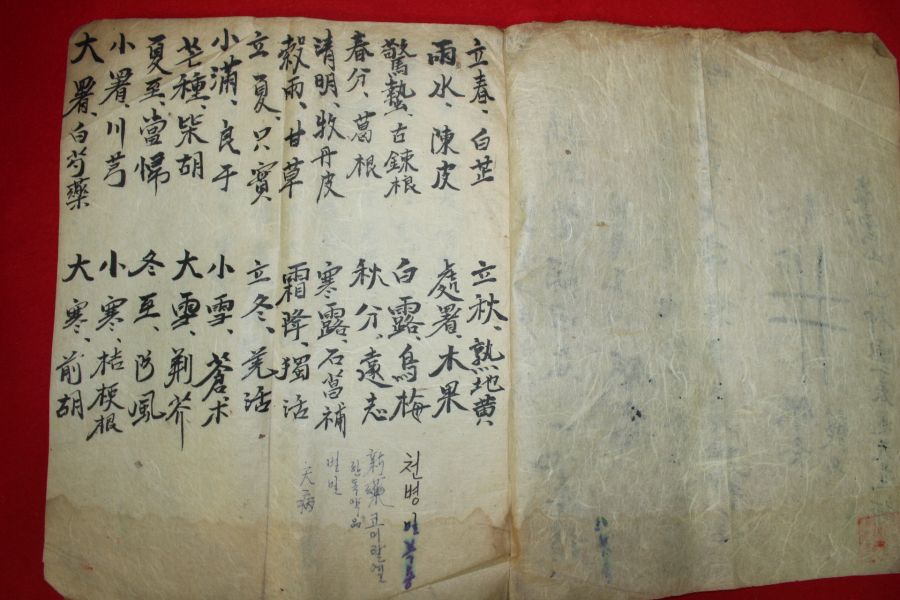 立春、白芷
雨水、陳皮
驚蟄、古鍊根
春分、葛根
清明、牧丹皮
穀雨、甘草
立夏、只實
小滿、良干
芒種、柴胡
夏至、當歸
小署、川芎
大署、白芍藥
立秋、熟地黃
處署、木果
白露、烏梅
秋分、遠志
寒露、石菖補
霜降、獨活
立冬、羌活
小雪、蒼朮
大雪、荊芥
冬至、防風
小寒、桔梗根
大寒、前胡
천병
新藥